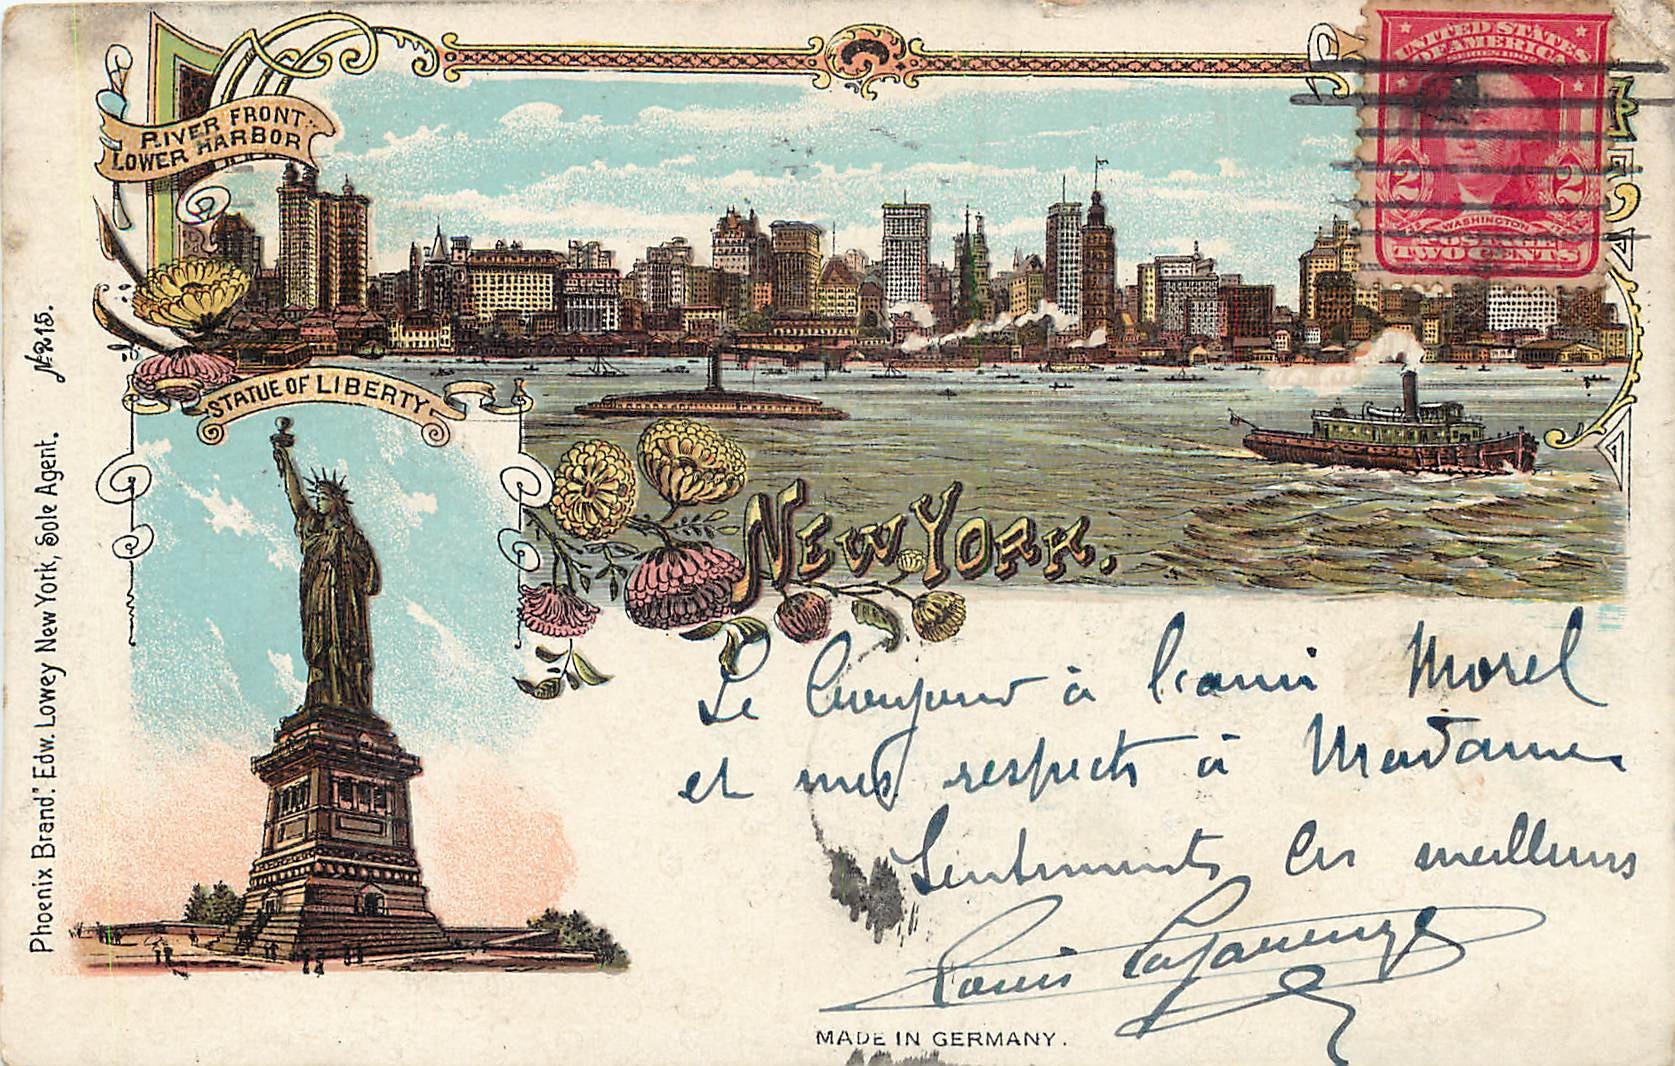 RIVER FRONT
LOWER HARBOR
UNITED STATES
OF AMERICA
2 2
WASHINGTON
POSTAGE
TWO CENTS
STATUE OF LIBERTY
NEW YORK.
Phoenix Brand". Edw. Lowey New York, Sole Agent. No 215.
Le bonjour à l'ami Morel
et mes respects à Madame
Sentiments les meilleurs
Louis
MADE IN GERMANY.